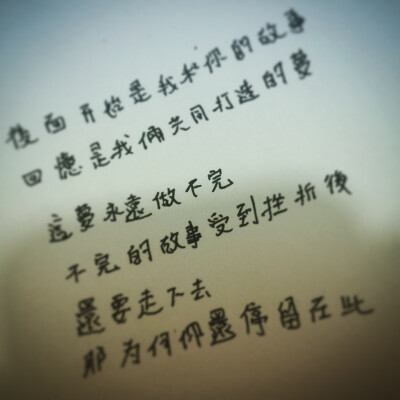 後面開始是我和你的故事
回憶是我倆共同打造的夢
這夢永遠做不完
不完的故事受到挫折後
還要走下去
那為何你還停留在此